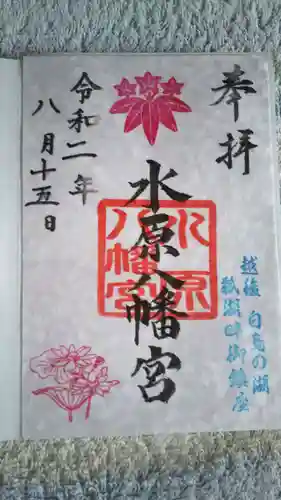 奉拝
越後 白鳥の湖
瓢湖畔御鎮座
水原八幡宮
水原八幡宮
令和二年
八月十五日